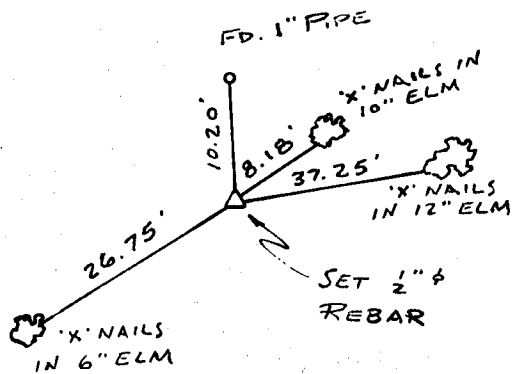 FD. 1" PIPE
'X' NAILS IN
10" ELM
10.20'
8.18'
37.25'
'X' NAILS
IN 12" ELM
26.75'
SET 1/2" ϕ
REBAR
'X' NAILS
IN 6" ELM